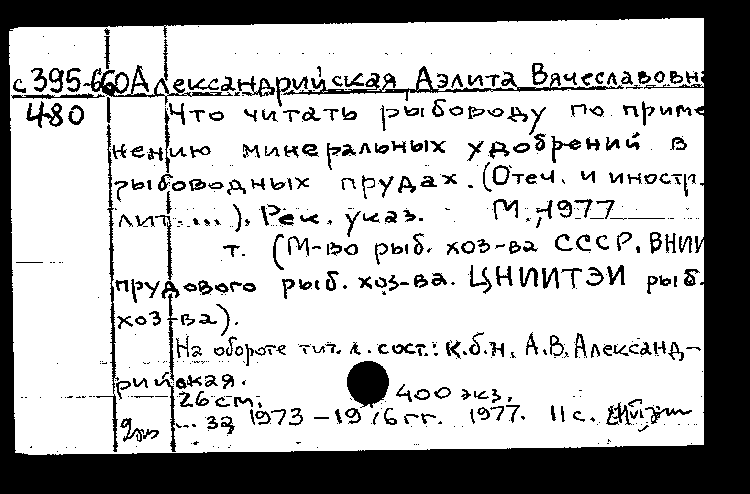 с395-660 Александрийская, Аэлита Вячеславовна
480 Что читать рыбоводу по приме
нению минеральных удобрений в
рыбоводных прудах. (Отеч. и иностр.
лит. ...). Рек. указ. М., 1977
т. (М-во рыб. хоз-ва СССР. ВНИИ
прудового рыб. хоз-ва. ЦНИИТЭИ рыб.
хоз-ва).
На обороте тит. л. сост.: к.б.н. А.В. Александ-
рийская.
26 см. 400 экз.
... за 1973-1976 гг. 1977. 11 с.